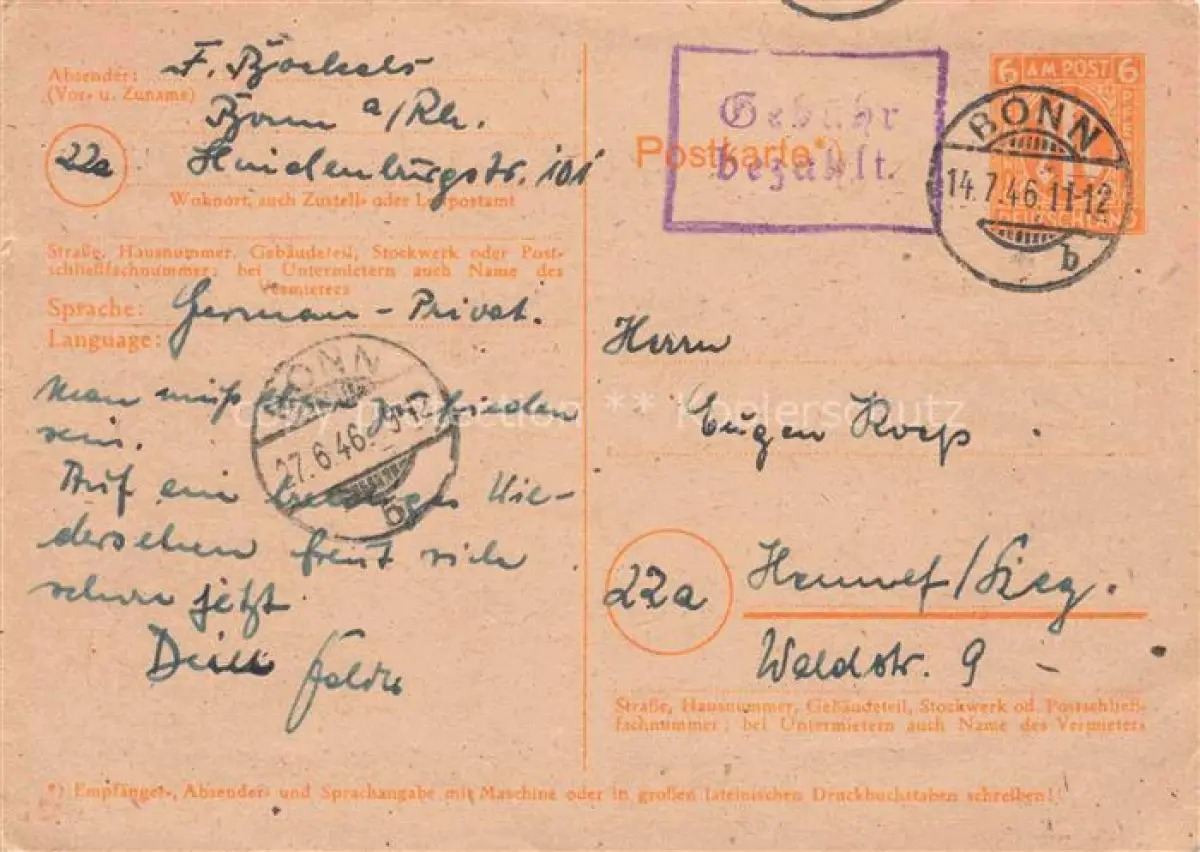 Absender:
(Vor- u. Zuname)
F. Böckels
Bonn a/Rh.
22a
Hindenburgstr. 101
Wohnort, auch Zustell- oder Leitpostamt
Straße, Hausnummer, Gebäudeteil, Stockwerk oder Post-
schließfachnummer; bei Untermietern auch Name des
Vermieters
Sprache:
Language:
German - Privat.
Man muß eben zufrieden
sein.
Auf ein Wie-
dersehen freut sich
schon jetzt
Dein
BONN
27.6.46. 9-12
b
Gebühr
bezahlt.
Postkarte*)
6 AM POST 6
DEUTSCHLAND
BONN
14.7.46.11-12
b
Herrn
Eugen
22a
Hennef/Sieg.
Waldstr. 9 -
Straße, Hausnummer, Gebäudeteil, Stockwerk od. Postschließ-
fachnummer; bei Untermietern auch Name des Vermieters
*) Empfänger-, Absender- und Sprachangabe mit Maschine oder in großen lateinischen Druckbuchstaben schreiben!
** Kopierschutz